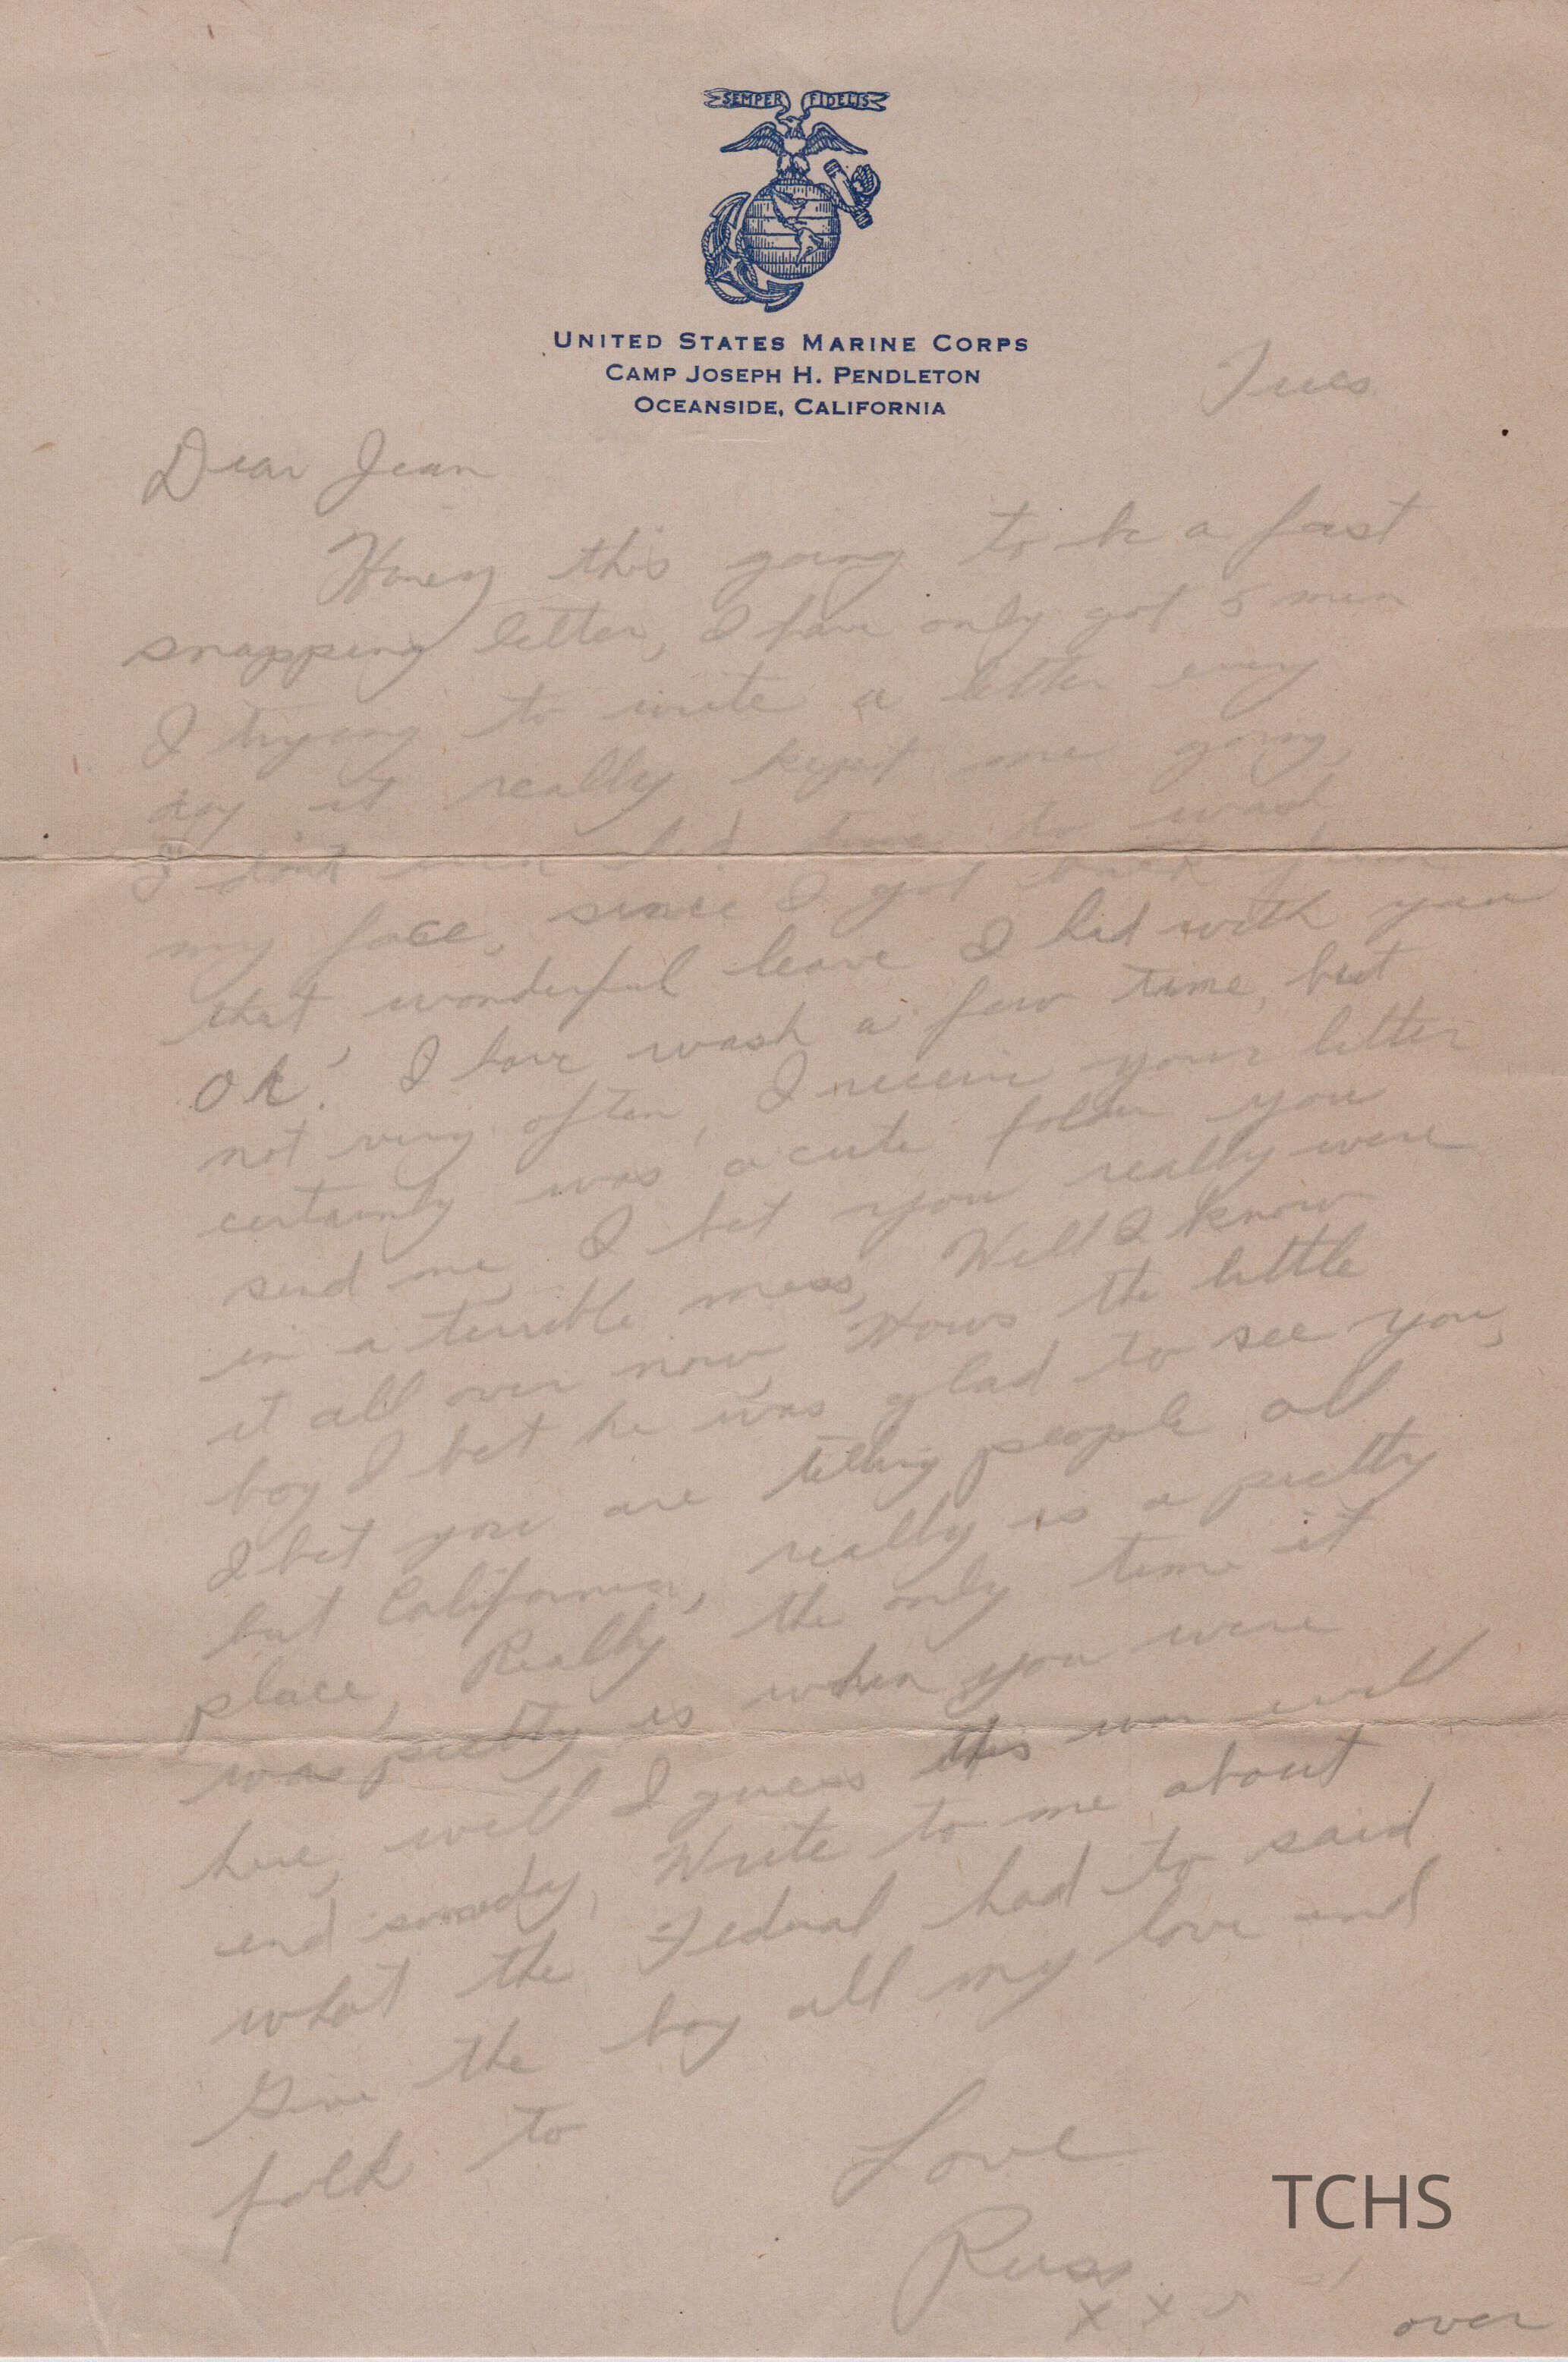 SEMPER FIDELIS
UNITED STATES MARINE CORPS
CAMP JOSEPH H. PENDLETON
OCEANSIDE, CALIFORNIA
Tues
Dear Jean
Honey this going to be a fast
snapping letter, I have only got 5 min
I trying to write a letter every
day it really kept me going,
I don't had time to wash
my face, since I got back from
that wonderful leave I had with you
OK! I have wash a few time, but
not very often, I receive your letter
certainly was a cute you
send me, I bet you really were
in a terrible mess, Well I know
it all over now, Hows the little
boy I bet he was glad to see you,
I bet you are telling people all
but California, really is a pretty
place, Really the only time it
was pretty is when you were
here, well I guess this war will
end someday, Write to me about
what the Federal had to said
Give the boy all my love and
folk to
Love
Russ
x x
over
TCHS